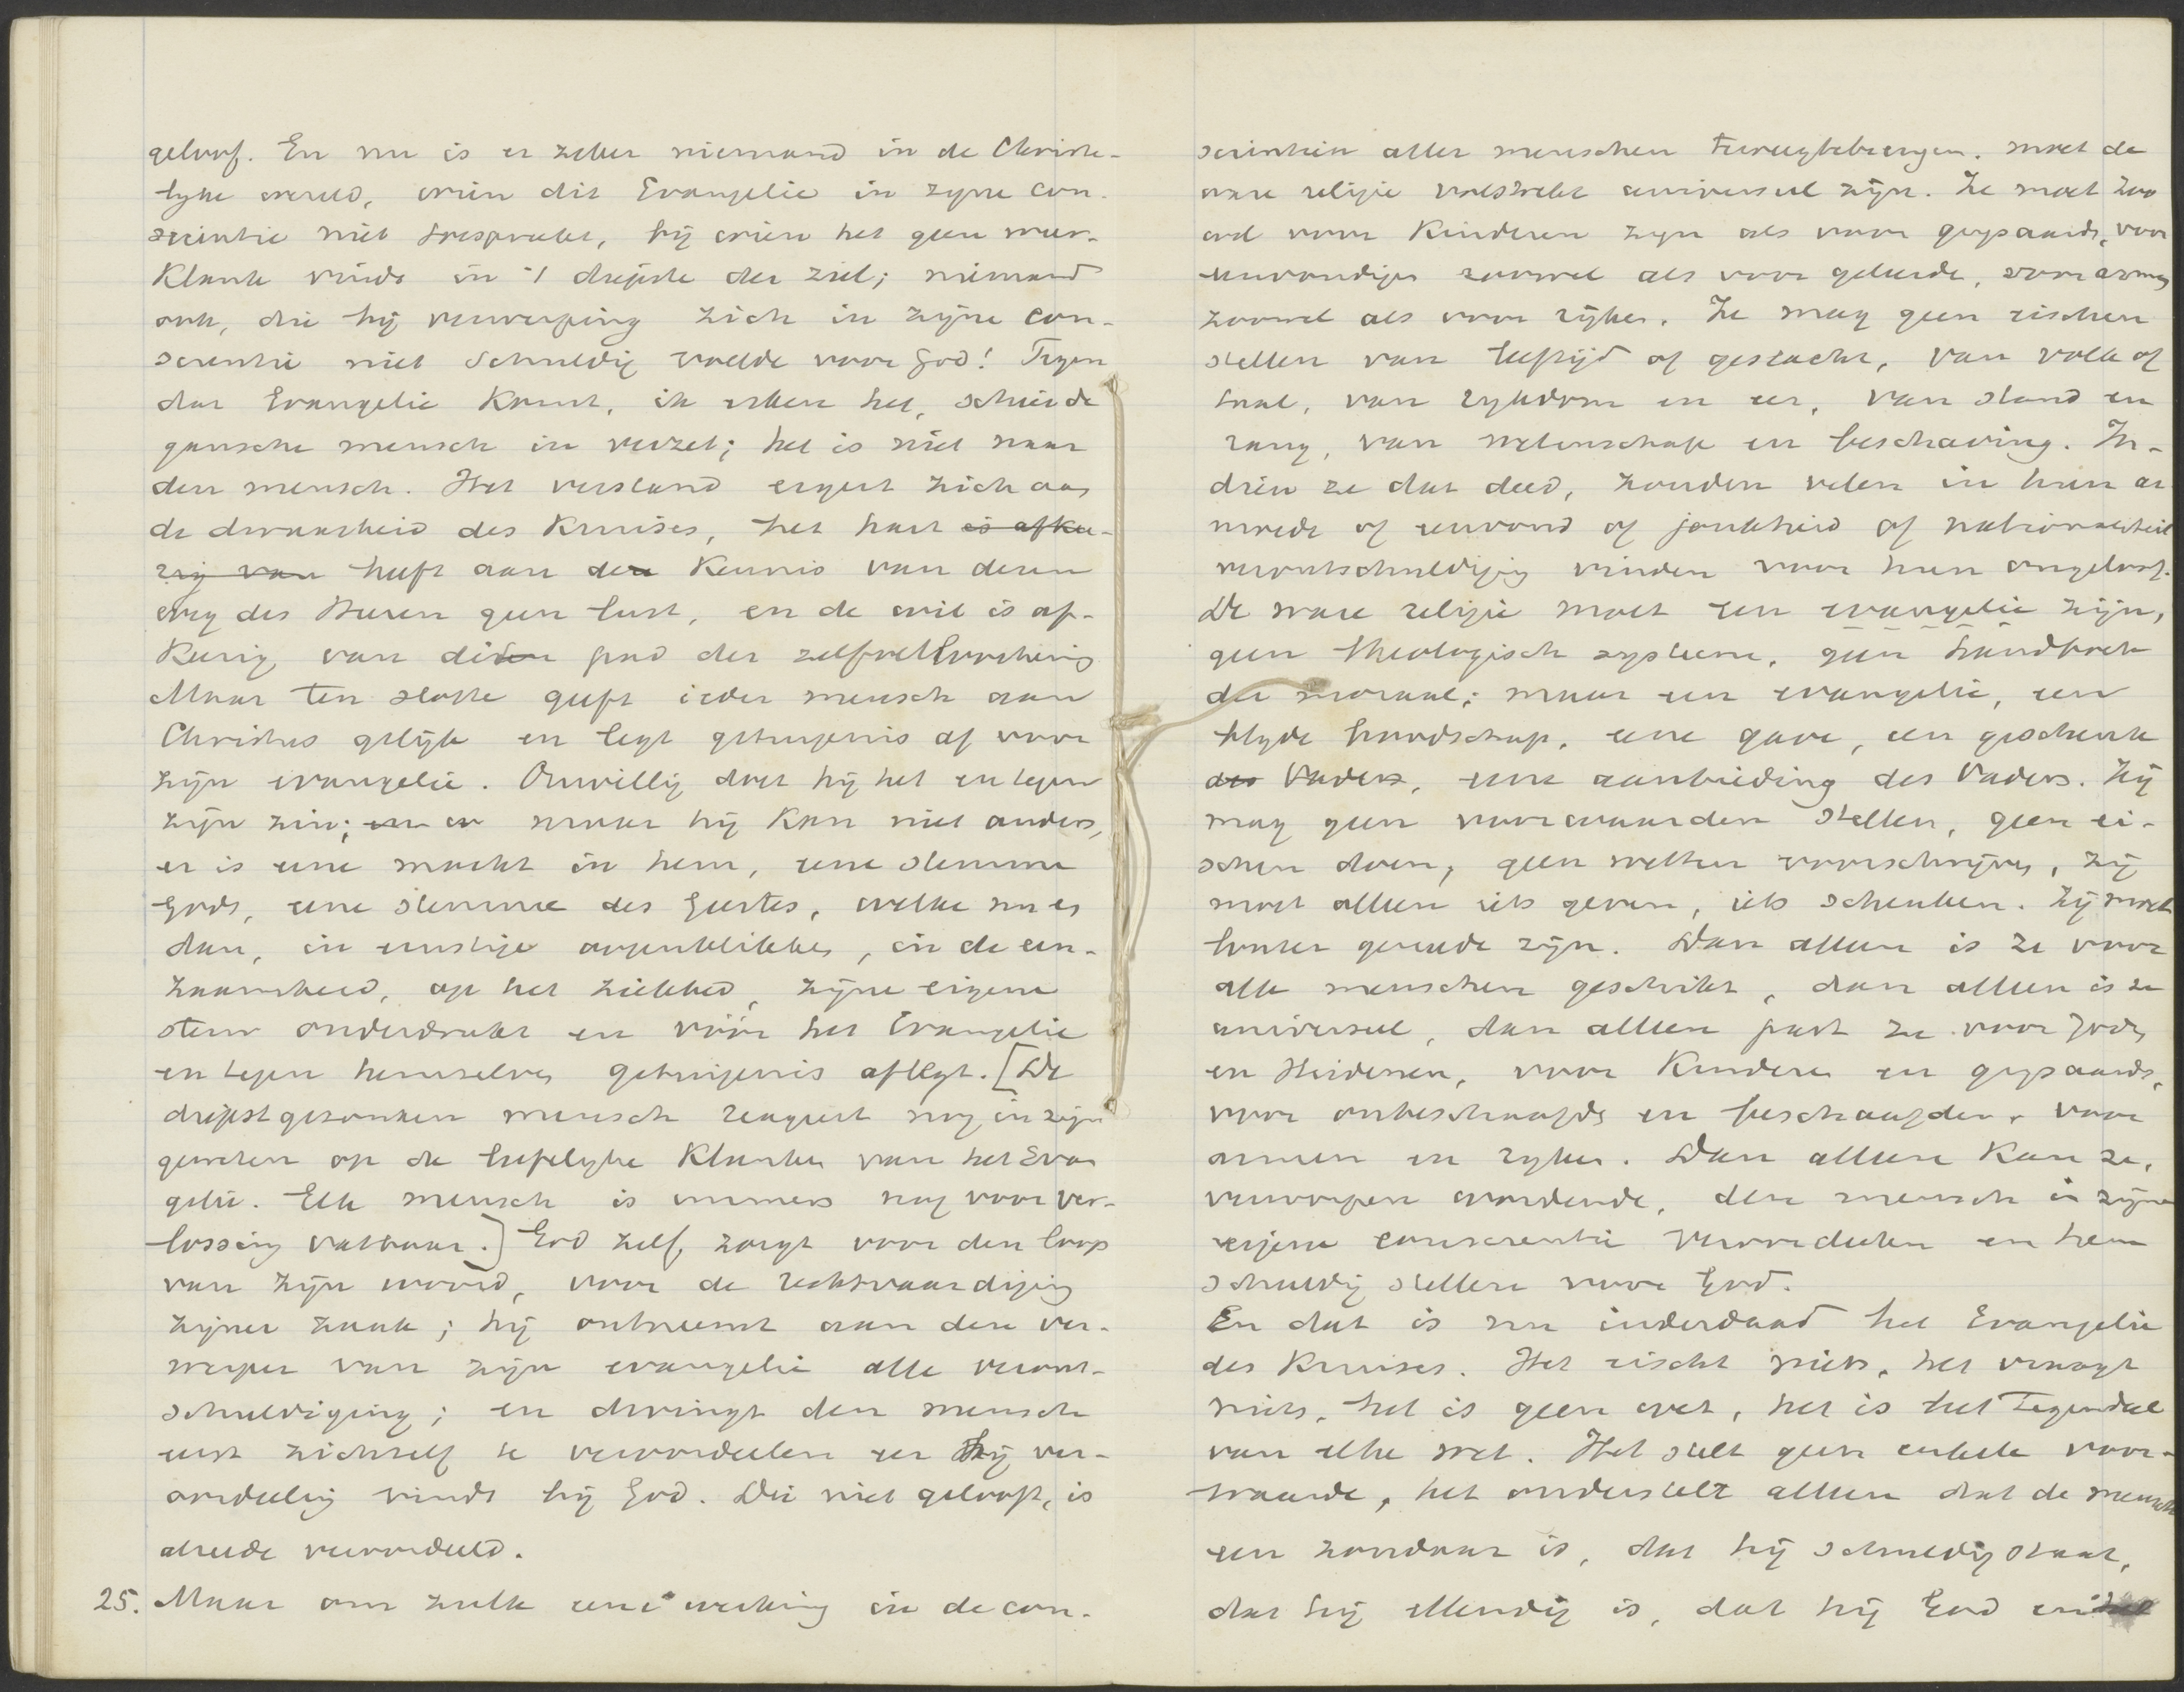 geloof. En nu is er zeker niemand in de Christe-
lyke wereld, wien dit Evangelie in zyne con-
scientie niet toespreekt, bij wien het geen weer-
klank vindt in 't diepste der ziel; niemand
ook, die bij verwerping zich in zijne con-
scientie niet schuldig voelde voor God! Tegen
dat Evangelie komt, ik erken het, schier de
gansche mensch in verzet; het is niet naar
den mensch. Het verstand ergert zich aan
de dwaasheid des Kruises, het hart is afke-
rig van heeft aan den Kennis van deren
weg des Heeren geen lust, en de wil is af-
kerig van dit pad der zelfverloochening
Maar ten slotte geeft ieder mensch aan
Christus gelijk en legt getuigenis af voor
zijn evangelie. Onwillig doet hij het en tegen
zijn zin; en er maar hij kan niet anders,
er is eene macht in hem, eene stemme
Gods, eene stemme des Geestes, welke nu en
dan, in ernstige oogenblikken, in de een-
zaamheid, op het ziekbed, zijne eigene
stem onderdrukt en vóór het Evangelie
en tegen hemzelven getuigenis aflegt. [De
diepst gezonken mensch reageert nog in zijn
geweten op de liefelyke klanken van het Evan
gelie. Elk mensch is immers nog voor ver-
lossing vatbaar.] God zelf, zorgt voor den loop
van zijn woord, voor de rechtvaardiging
zijner zaak; hij ontneemt aan den ver-
werper van zijn evangelie alle veront-
schuldiging; en dwingt den mensch
eerst zichzelf te veroordeelen eer hij ver-
oordeeling vindt bij God. Die niet gelooft, is
alreede veroordeeld.
25. Maar om zulk eene werking in de con-
scientien aller menschen teweegtebrengen, moet de
ware religie volstrekt universeel zijn. Ze moet zoo
wel voor Kinderen zijn als voor grijsaards, voor
eenvoudigen zoowel als voor geleerde, voor armen
zoowel als voor rijken. Ze mag geen eischen
stellen van leeftijd of geslacht, van volk of
taal, van rykdom en eer, van stand en
rang, van wetenschap en beschaving. In-
dien ze dat deed, zouden velen in hun ar
moede of eenvoud of jonkheid of nationaliteit
verontschuldiging vinden voor hun ongeloof.
De ware religie moet een evangelie zijn,
geen theologisch systeem, geen handboek
der moraal; maar een evangelie, een
blyde boodschap, eene gave, een geschenk
des Vaders, eene aanbieding des Vaders. Zij
mag geen voorwaarden stellen, geen ei-
schen doen, geen wetten voorschrijven, zij
moet alleen iets geven, iets schenken. Zij moet
louter genade zijn. Dan alleen is ze voor
alle menschen geschikt, dan alleen is ze
universeel, dan alleen past ze voor Joden
en Heidenen, voor Kinderen en grijsaards,
voor onbeschaafde en beschaafden, voor
armen en ryken. Dan alleen kan ze,
verworpen wordende, den mensch in zijne
eigene conscientie veroordeelen en hem
schuldig stellen voor God.
En dat is nu inderdaad het Evangelie
des Kruises. Het eischt niets, het vraagt
niets, het is geen wet, het is het tegendeel
van elke wet. Het stelt geen enkele voor-
waarde, het onderstelt alleen dat de mensch
een zondaar is, dat hij schuldig staat,
dat hij ellendig is, dat hij God